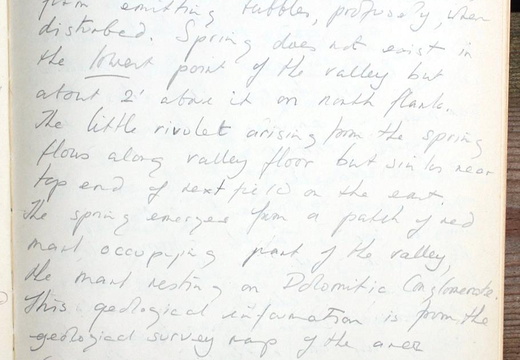 from emitting bubbles, profusely, when
disturbed. Spring does not exist in
the lowest point of the valley but
about 2' above it on north flank.
The little rivulet arising from the spring
flows along valley floor but sinks near
top end of next field on the east.
The spring emerges from a patch of red
marl occupying part of the valley,
the marl resting on Dolomitic Conglomerate.
This geological information is from the
geological survey map of the area